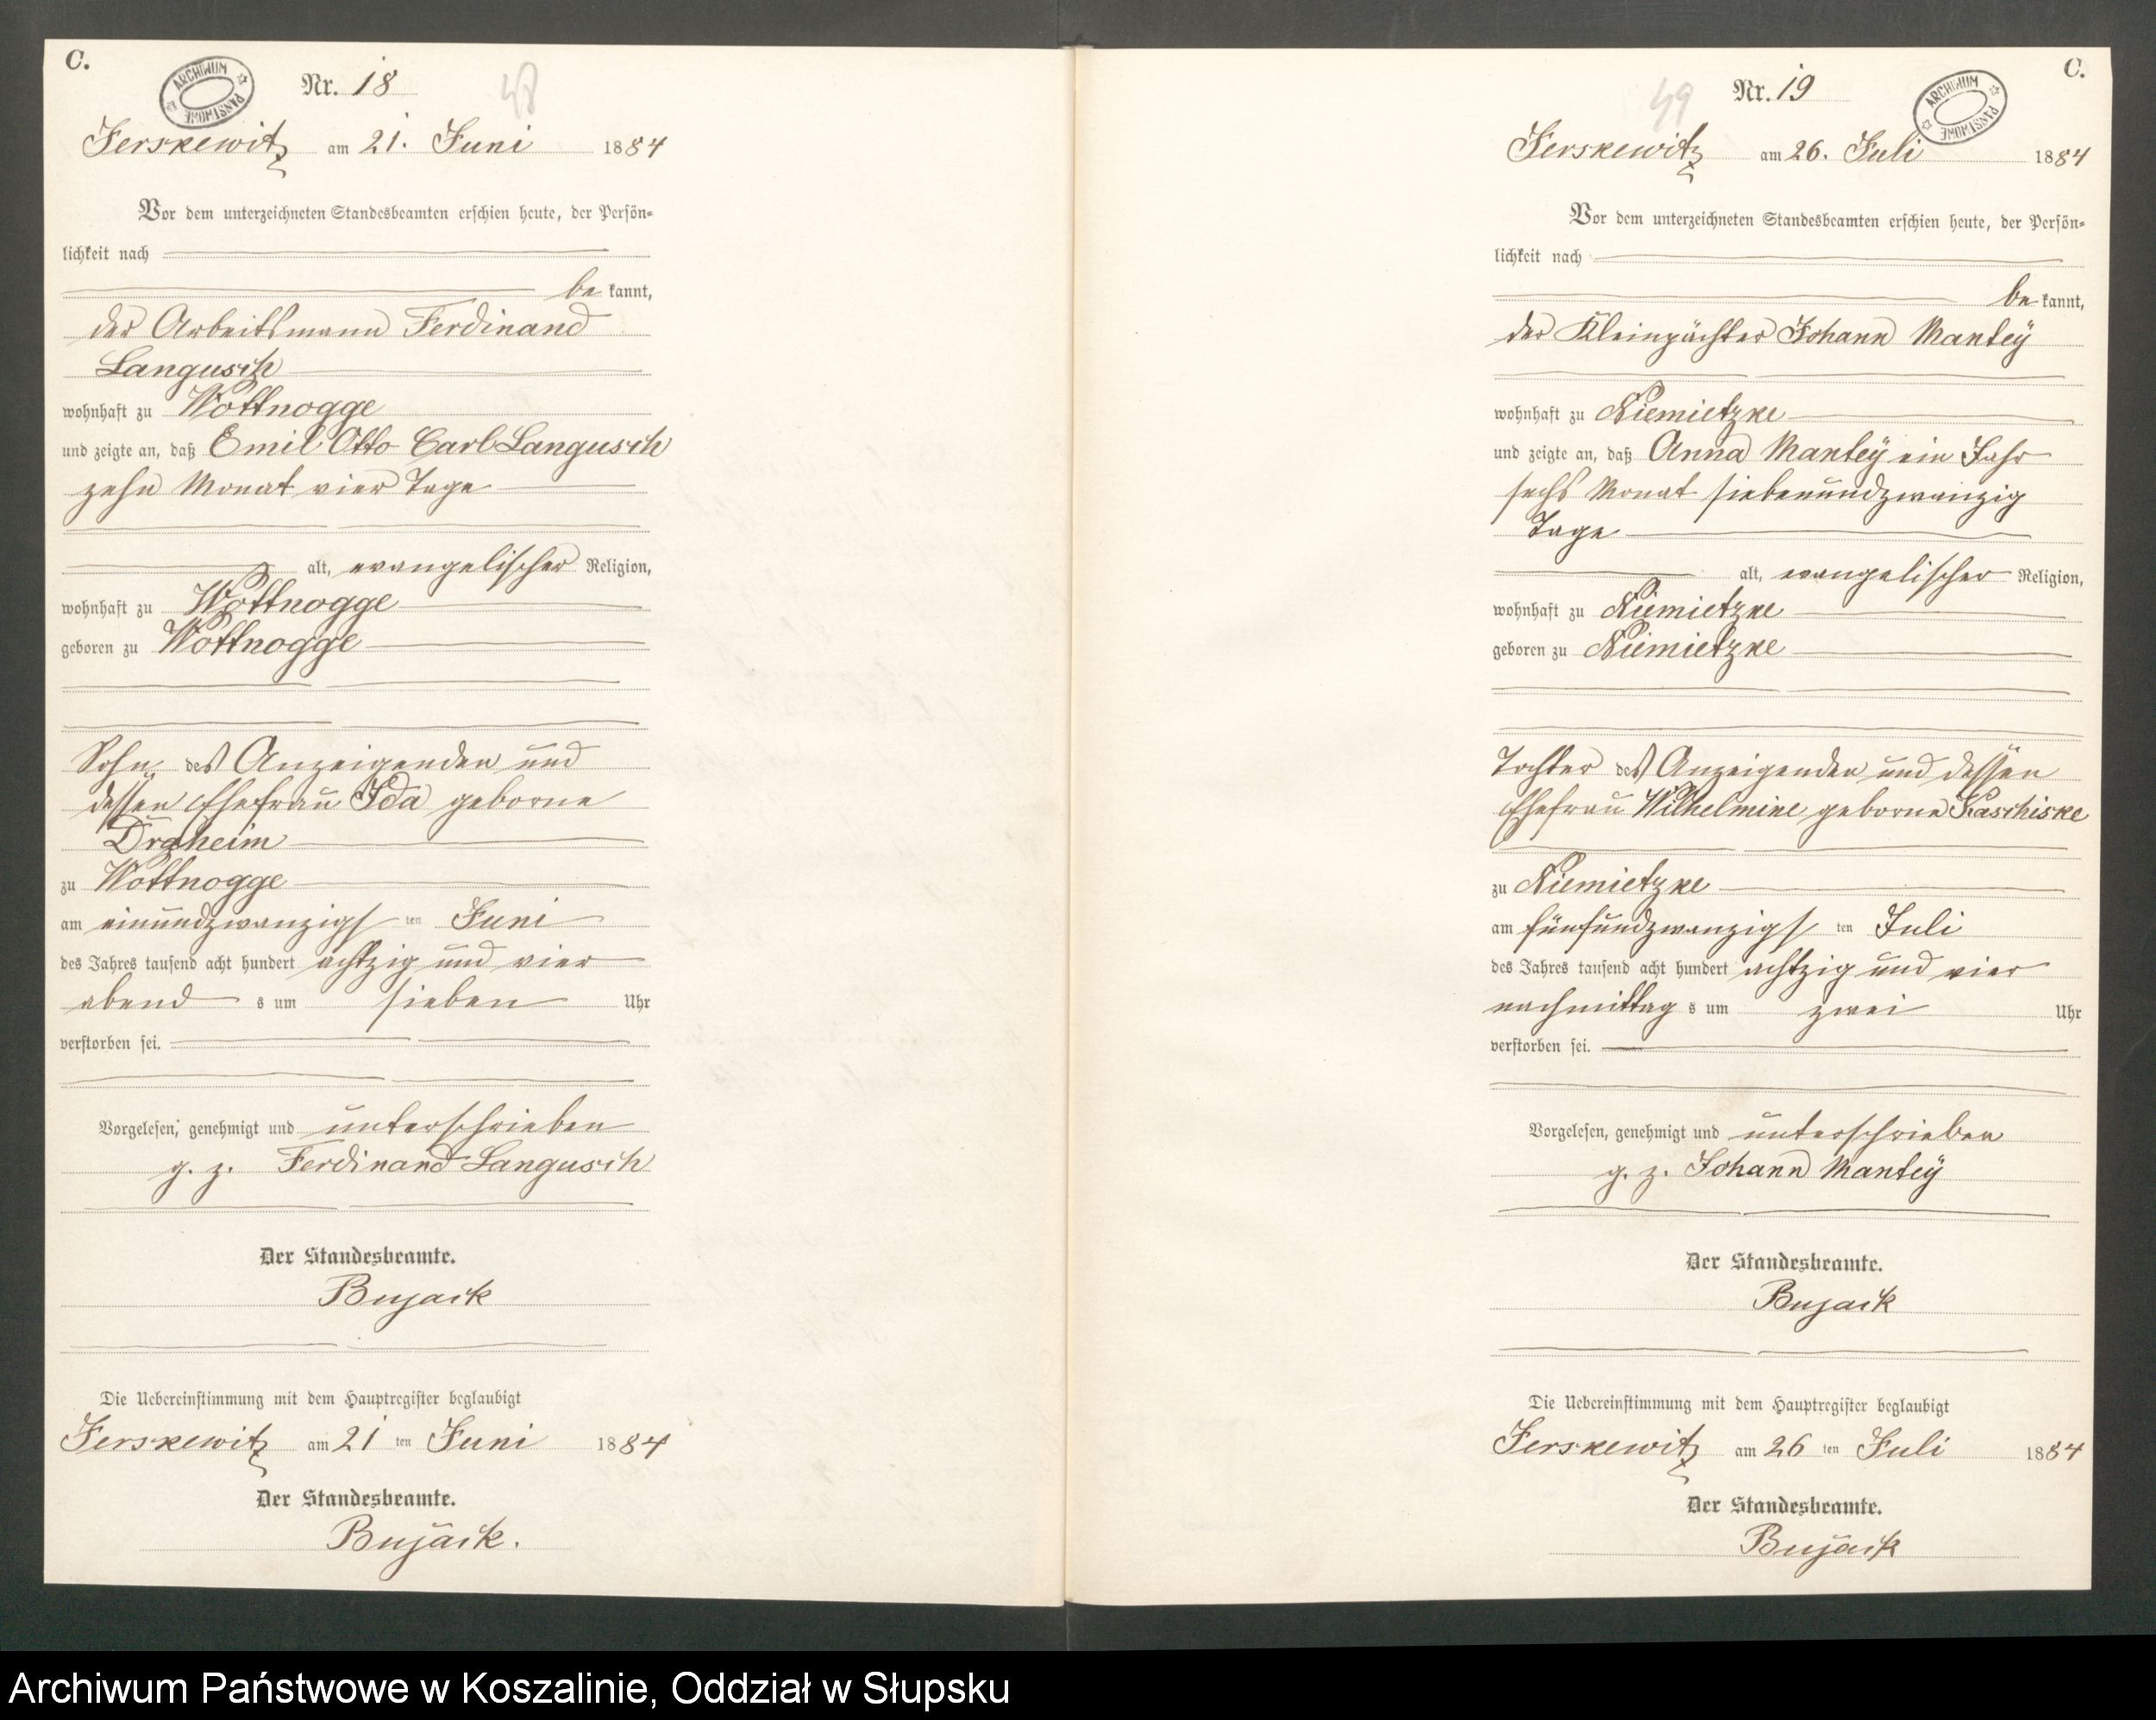 C.
ARCHIWUM PAŃSTWOWE
Nr. 18
48
Jerskewitz am 21. Juni 1884
Vor dem unterzeichneten Standesbeamten erschien heute, der Persön-
lichkeit nach
be kannt,
der Arbeitsmann Ferdinand
Langusch
wohnhaft zu Wottnogge
und zeigte an, daß Emil Otto Carl Langusch
zehn Monat vier Tage
alt, evangelischer Religion,
wohnhaft zu Wottnogge
geboren zu Wottnogge
Sohn des Anzeigenden und
dessen Ehefrau Ida geborne
Draheim
zu Wottnogge
am einundzwanzigsten Juni
des Jahres tausend acht hundert achtzig und vier
abends um sieben Uhr
verstorben sei.
Vorgelesen, genehmigt und unterschrieben
g. z. Ferdinand Langusch
Der Standesbeamte.
Bujack
Die Uebereinstimmung mit dem Hauptregister beglaubigt
Jerskewitz am 21 ten Juni 1884
Der Standesbeamte.
Bujack.
C.
ARCHIWUM PAŃSTWOWE
Nr. 19
49
Jerskewitz am 26. Juli 1884
Vor dem unterzeichneten Standesbeamten erschien heute, der Persön-
lichkeit nach
be kannt,
der Kleinpächter Johann Mantey
wohnhaft zu Niemietzke
und zeigte an, daß Anna Mantey ein Jahr
sechs Monat siebenundzwanzig
Tage
alt, evangelischer Religion,
wohnhaft zu Niemietzke
geboren zu Niemietzke
Tochter des Anzeigenden und dessen
Ehefrau Wilhelmine geborne Kaschiske
zu Niemietzke
am fünfundzwanzigsten Juli
des Jahres tausend acht hundert achtzig und vier
nachmittags um zwei Uhr
verstorben sei.
Vorgelesen, genehmigt und unterschrieben
g. z. Johann Mantey
Der Standesbeamte.
Bujack
Die Uebereinstimmung mit dem Hauptregister beglaubigt
Jerskewitz am 26 ten Juli 1884
Der Standesbeamte.
Bujack
Archiwum Państwowe w Koszalinie, Oddział w Słupsku